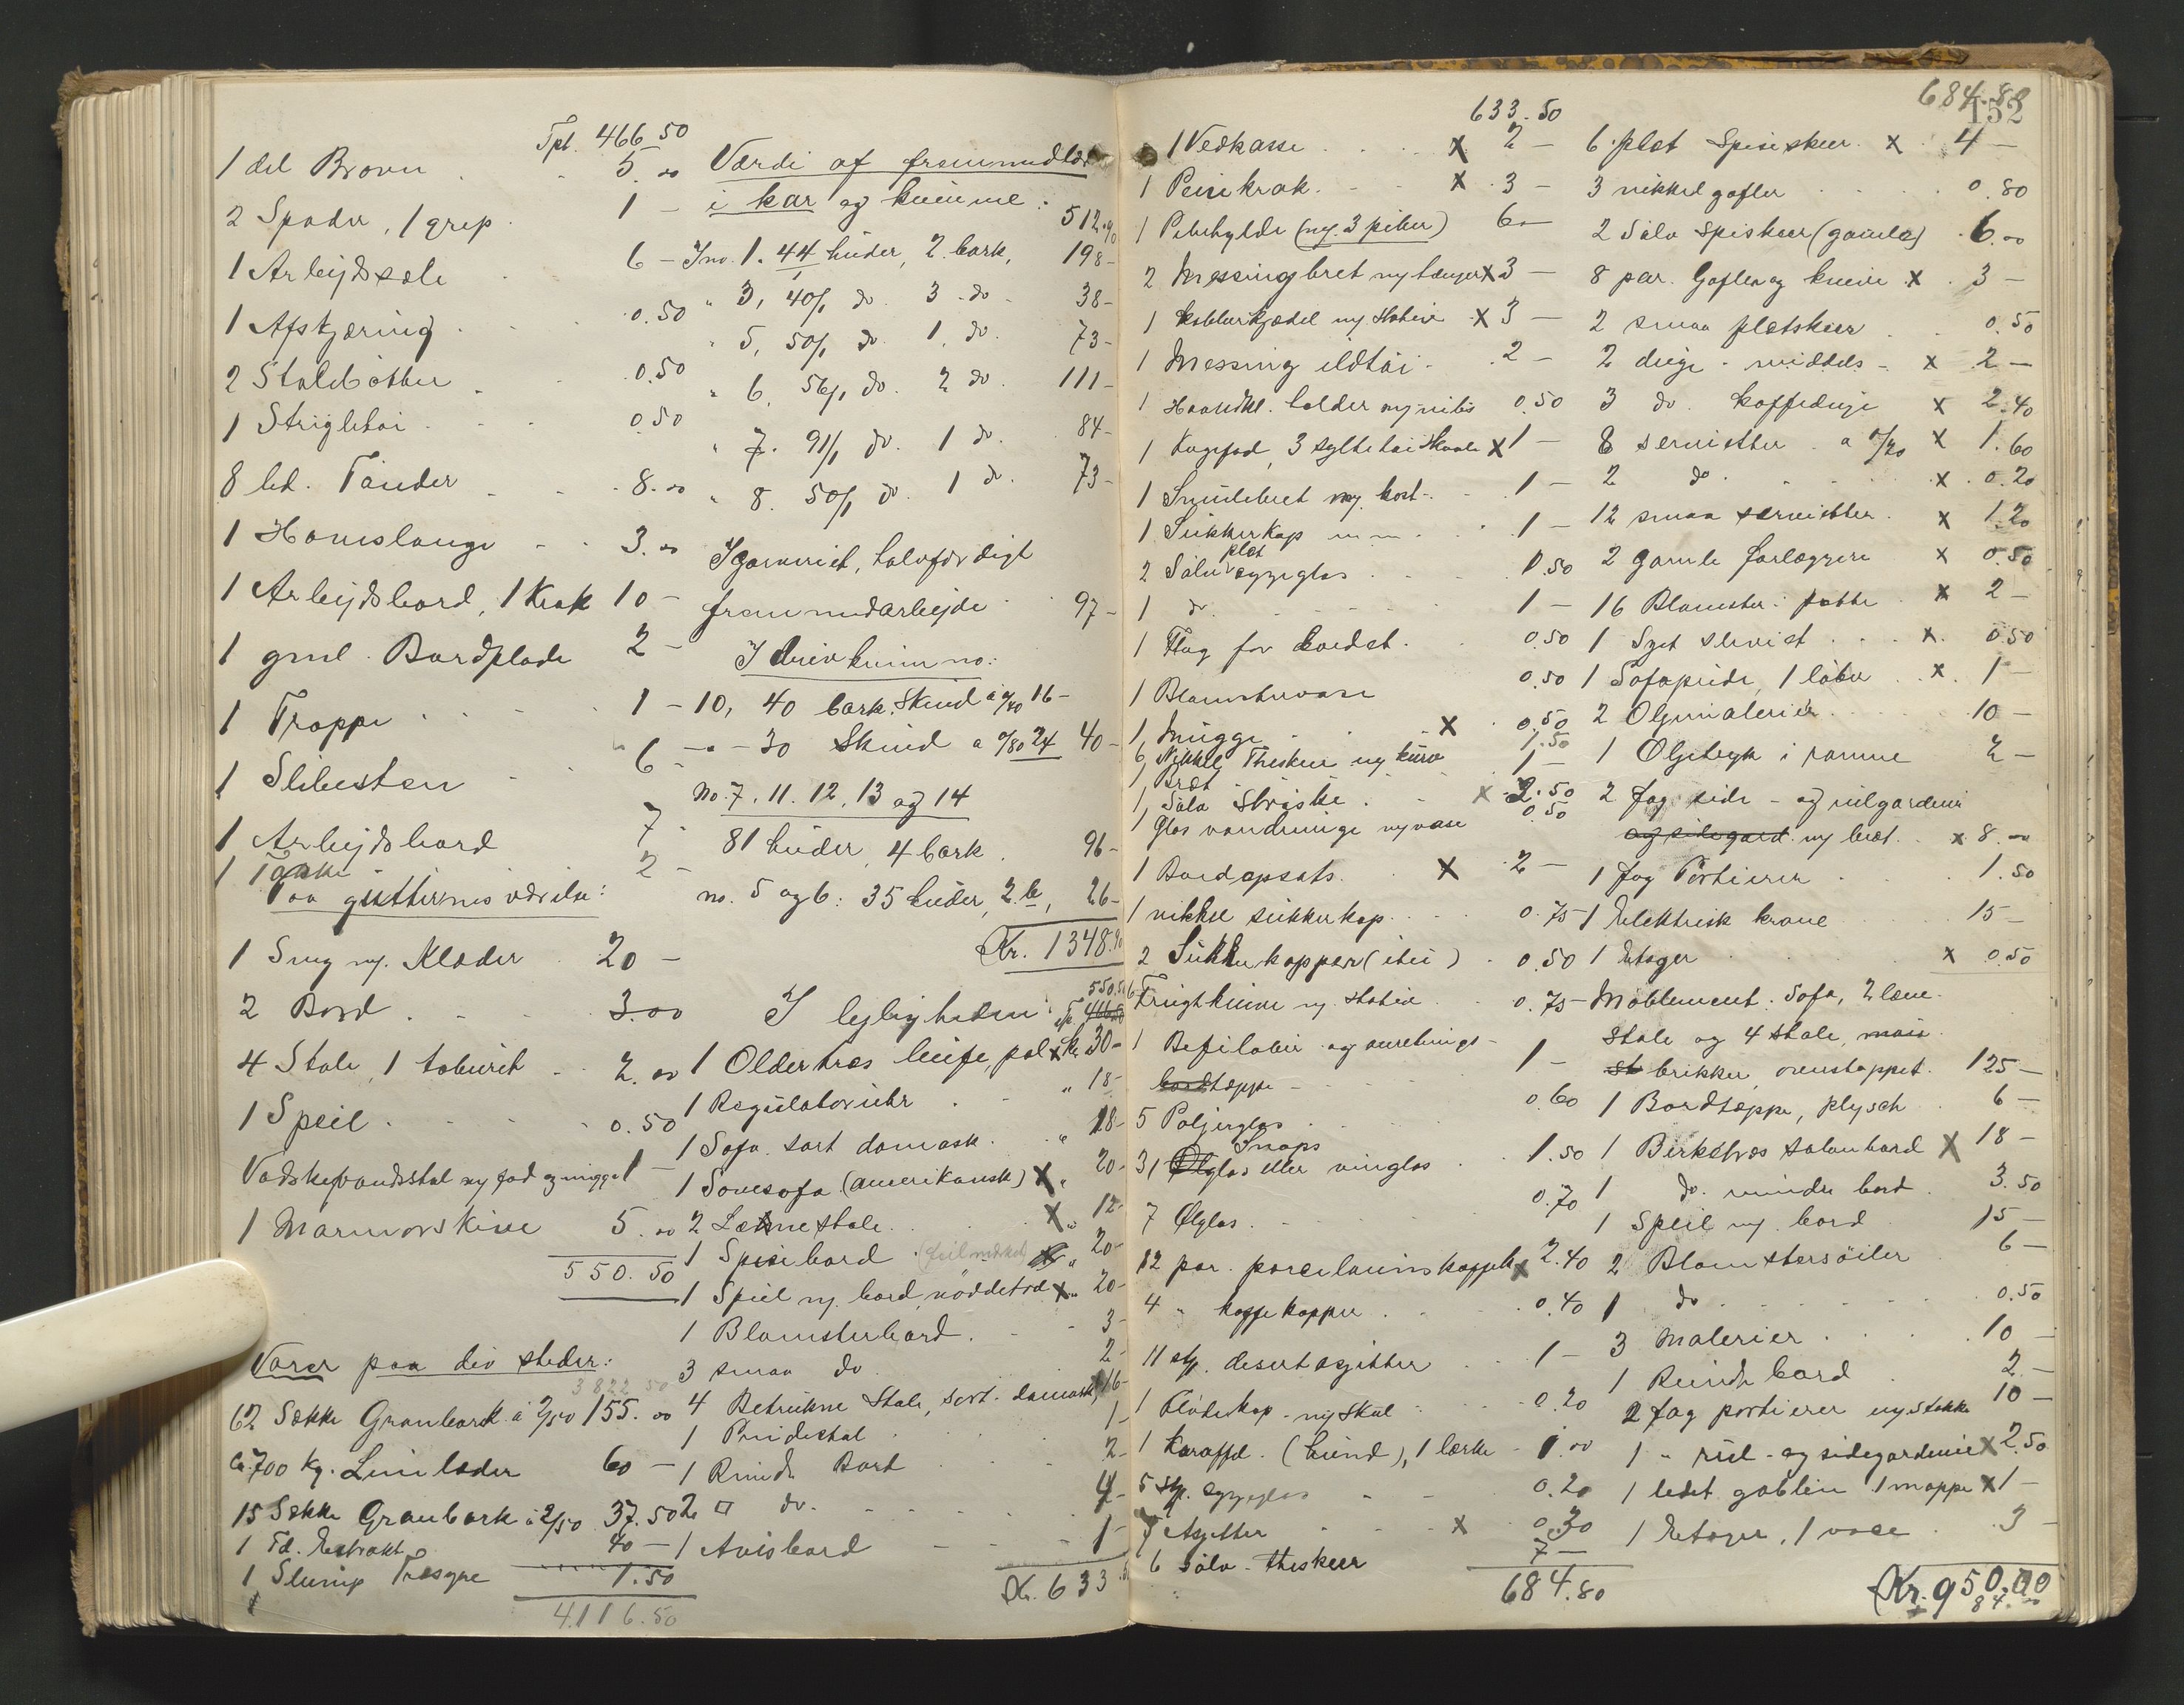 Tpt. 466.50
1 del Brovn 5.00
2 Spader, 1 grep 1 —
1 Arbejdssele 6 —
1 Afskjæring 0.50
2 Staldbøtter 0.50
1 Strigletøi 0.50
8 led. Tønder 8.00
1 Hamslange 3.00
1 Arbejdsbord, 1 Krak 10 —
1 gml. Bordplade 2 —
1 Trappe 1 —
1 Slibesten 6 —
1 Arbejdsbord 7 —
1 Taske 2 —
Paa gutternes værelse:
1 Seng m. Klæder 20 —
2 Bord 3.00
4 Stole, 1 taburet 2.00
1 Speil 0.50
Vadskevandsstol m/ fad og mugge 1 —
1 Marmorskive 5.00
550.50
Varer paa div steder:
3822.50
62 Sække Granbark à 2/50 155.00
ca. 700 Kg. Limlæder 60 —
15 Sække Granbark à 2/50 37.50
1 Td. Ekstrakt 40 —
1 Slump Træsyre 1.50
4116.50
Værdi af fremmedlær
i kar og kumme: 512.90
I no. 1. 44 huder, 2. bark, 198 —
" 3, 40/1 do. 3 do 38 —
" 5, 50/1 do. 1. do. 73 —
" 6, 56/1 do. 2 do. 111 —
" 7. 91/1 do. 1 do. 84 —
" 8. 50/1 do. 1 do. 73 —
I garveriet, halvfærdigt
fremmedarbejde 97 —
I drivkum no:
10, 40 bark. Skind à 0/40 16 —
" — 30 Skind a 0/80 24 40 —
No. 7. 11. 12, 13 og 14
81 huder, 4 bark. 96 —
no. 5 og 6: 35 huder, 2. b, 26 —
Kr. 1348.90
550.50
I lejligheden: Tp. 466.50
1 Oldertræs 30 —
1 Regulatoruhr " 18 —
1 Sofa sort damask " 18 —
1 Sovesofa (amerikansk) X " 20 —
2 Lænestole X " 12 —
1 Spisebord (feilmærket) X " 20 —
1 Speil m. bord, nøddetræ X " 20 —
1 Blomsterbord 3 —
3 smaa do 2 —
4 Betrukne Stole, sort damask, 16 —
1 Pindestol 1 —
1 Rundt Bord 2 —
2 □ do. 4 —
1 Avisbord 1 —
Kr. 633
633.50
1 Vedkasse X 2 —
1 Peiskrak X 3 —
1 Pibehylde (m. 3 piber) 6 —
2 Messingbret m/ tænger X 3 —
1 kobberkjedel m/ stativ X 3 —
1 Messing ildtøi 2 —
1 Haandkl. holder m/ nips 0.50
1 Kagefad, 3 syltetøiskaale X 1 —
1 Smulebret m/ kost 1 —
1 Sukkerkop m m 1 —
2 Sølvplet æggeglas 1.50
1 do. 1 —
1 Flag for bordet 0.50
1 Blomstervase 0.50
1 Mugge X 0.50
6 Nikkel Theskeer m/ kurv 1.50
1 Bræt 1 —
1 Sølv Strøske X 2.50
1 Glas vandmugge m/ vase 0.50
1 Bordopsats X 2 —
1 nikkel sukkerkop 0.75
2 Sukkerkopper (itu) 0.50
Frugtkniver m/ stativ 0.75
1 og anretnings- 1 —
bordtæppe
5 Poljerglas 0.60
31 Snaps Ølglas eller vinglas 1.50
7 Ølglas 0.70
12 par. porcelainskopper X 2.40
4 " kaffekopper 0.40
11 stk. desertasjetter 1 —
1 Flødekop m/ Skaal 0.20
1 Karaffel. (hund), 1 lærke 1.00
5 Stk. æggeglas 0.20
7 Asjetter X 0.30
6 Sølv-theskeer 7 —
684.80
684.80
152
6 plet Spiseskeer X 4 —
3 nikkel gafler 0.80
2 Sølv Spiskeer (gamle) 6.00
8 par. Gafler og knive X 3 —
2 smaa pletskeer 0.50
2 duge - middels - X 2 —
3 do. kaffeduge X 2.40
8 servietter a 0/20 X 1.60
2 do. X 0.20
12 smaa servietter X 1.20
2 gamle forlæggere X 0.50
16 Blomster potte X 2 —
1 Syet serviet X 0.50
1 Sofapude, 1 løber X 1 —
2 Oljemalerier 10 —
1 Oljetryk i ramme 2 —
2 fag side- og rulgardiner
og sidegard. m/ bræt X 8.00
1 fag Portierer 1.50
1 Elektrisk krone 15 —
1 Etager X 0.50
Møblement: Sofa, 2 læne-
stole og 4 stole,
brikker, ovnstæppet 125 —
1 Bordtæppe, plysch 6 —
1 Birketræs salonbord X 18 —
1 do. mindre bord 3.50
1 Speil m/ bord 15 —
2 Blomstersøiler 6 —
1 do 0.50
3 Malerier 10 —
1 Rundt bord 2 —
2 fag portierer m/ stokke 10 —
1 " rul- og sidegardiner X 2.50
1 ledet goblin 1 mappe X 1 —
1 Etager, 1 vase 3 —
Kr. 950.00
84.